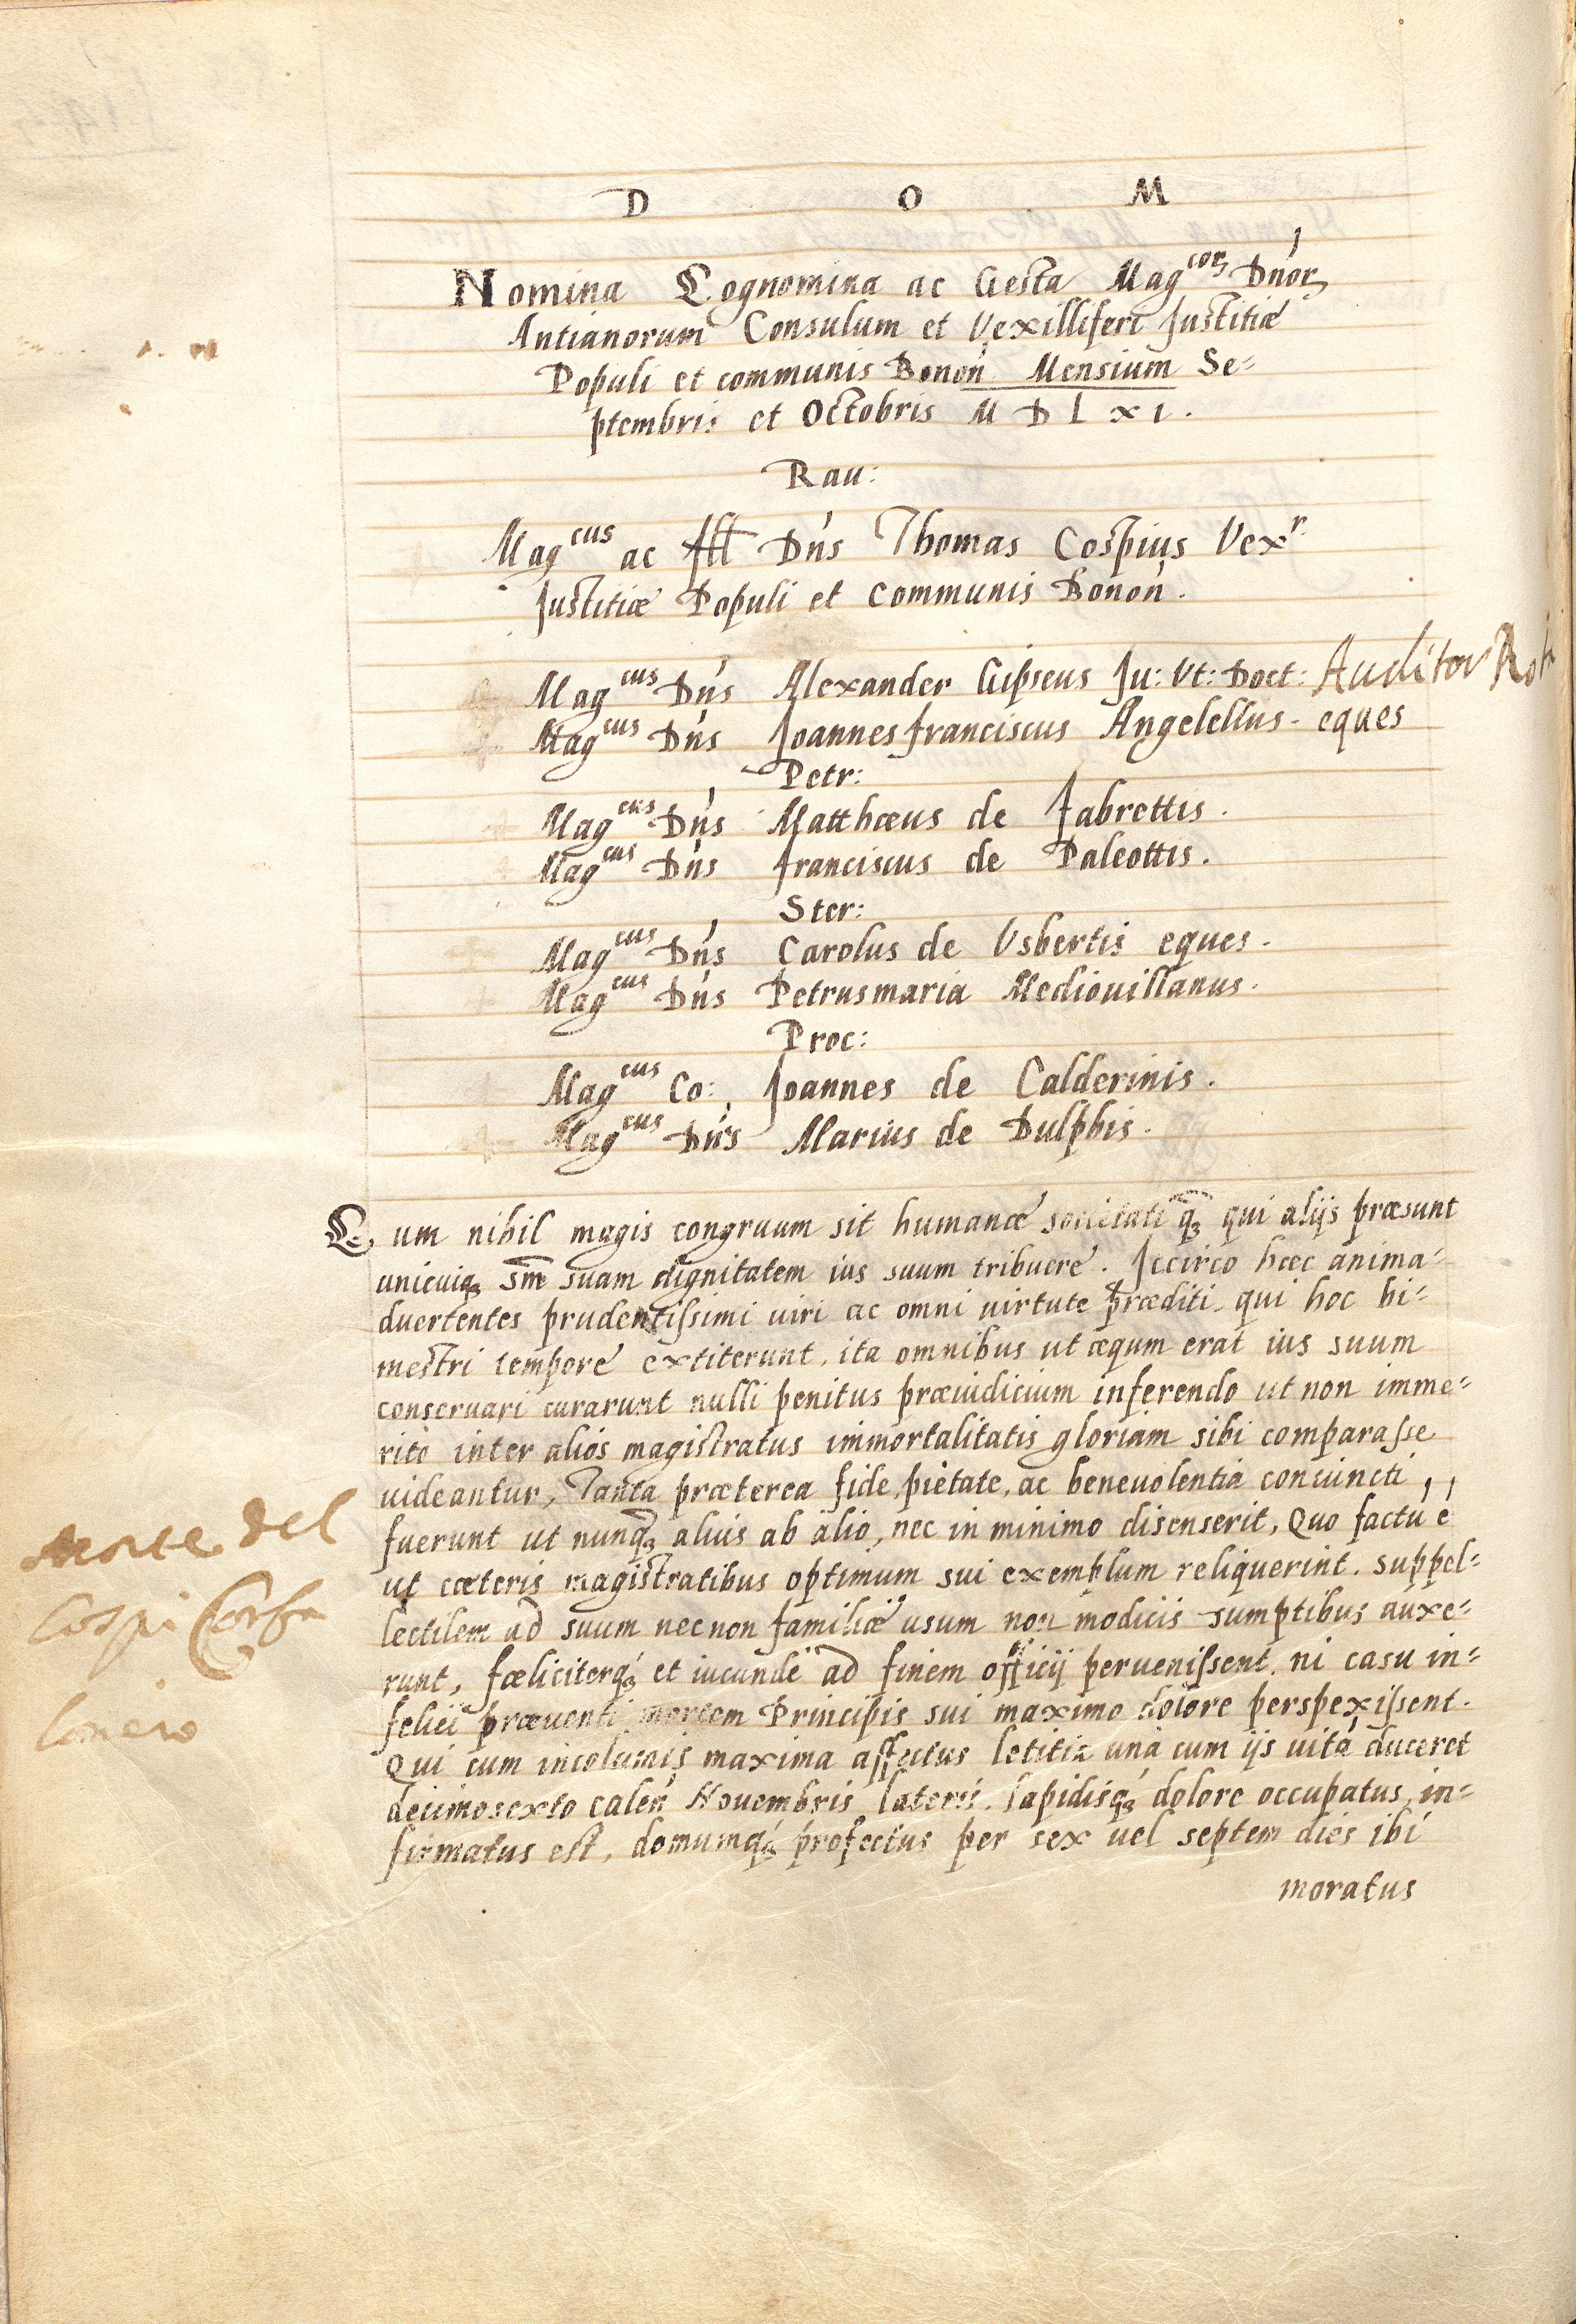 D O M
Nomina Cognomina ac Gesta Mag^corꝫ Dn̄orꝫ
Antianorum Consulum et Vexilliferi Justitiæ
Populi et communis Bonon̄ Mensium Se=
ptembris et Octobris M D L X I.
Rau:
Mag^cus ac Ill Dn̄s Thomas Cospius Vex^r
Justitiæ Populi et communis Bonon̄.
Mag^cus Dn̄s Alexander Gipseus Ju: Vt: Doct: Auditor Rot
Mag^cus Dn̄s Joannesfranciscus Angelellus - eques
Petr:
Mag^cus Dn̄s Matthæus de fabrettis.
Mag^cus Dn̄s franciscus de Paleottis.
Ster:
Mag^cus Dn̄s Carolus de Vsbertis eques.
Mag^cus Dn̄s Petrusmaria Mediouillanus.
Proc:
Mag^cus Co: Joannes de Calderinis.
Mag^cus Dn̄s Marius de Dulphis.
Cum nihil magis congruum sit humanæ societati q̄ꝫ qui alijs præsunt
unicuiqꝫ sm̄ suam dignitatem ius suum tribuere. Iccirco hæc anima=
duertentes prudentissimi uiri ac omni uirtute præditi, qui hoc bi=
mestri tempore extiterunt, ita omnibus ut æqum erat ius suum
conseruari curarunt nulli penitus præiudicium inferendo ut non imme=
rito inter aliós magistratus immortalitatis gloriam sibi comparasse
uideantur, Tanta præterea fide, pietate, ac beneuolentia coniuncti,
fuerunt ut nunq̄ꝫ alius ab alio, nec in minimo disenserit, Quo factū ē
ut cæteris magistratibus optimum sui exemplum reliquerint. suppel=
lectilem ad suum necnon familiæ usum non modicis sumptibus auxe=
runt, fæliciterqꝫ et iucunde ad finem officij peruenissent, ni casu in=
felici præuenti mortem Principis sui maximo dolore perspexissent.
Qui cum incolumis maxima affectus letitia unà cum ijs uitā duceret
decimosexto calen̄ Nouembris lateris. lapidisqꝫ dolore occupatus, in=
firmatus est, domumqꝫ profectus per sex uel septem dies ibi
moratus
Morte del
Cospi Confa
loniero